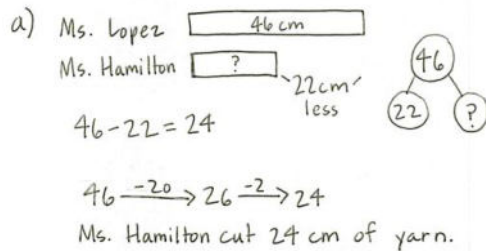 a) Ms. Lopez 46 cm
Ms. Hamilton ?
22cm less
46
22 ?
46-22=24
46 -20→ 26 -2→ 24
Ms. Hamilton cut 24 cm of yarn.